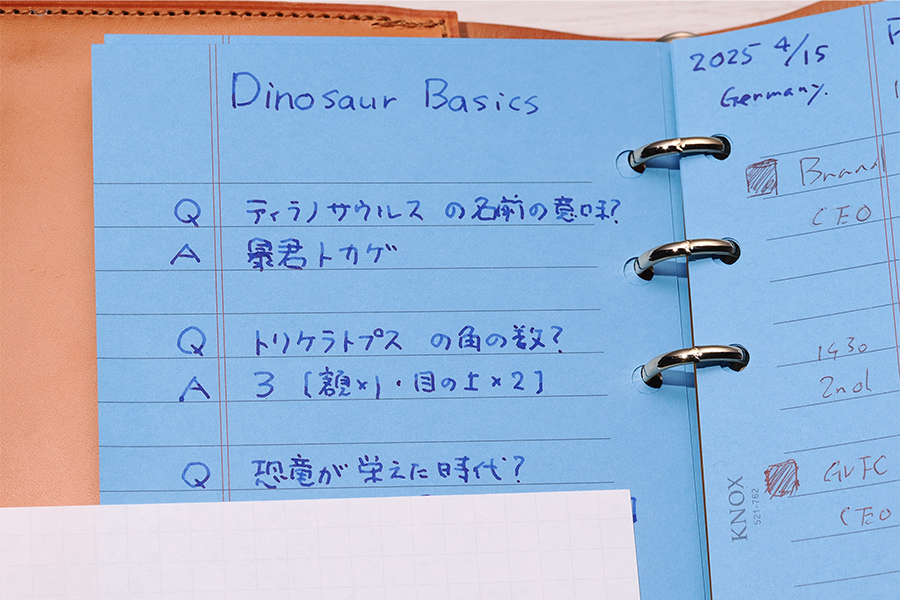 Dinosaur Basics
Q ティラノサウルス の名前の意味?
A 暴君トカゲ
Q トリケラトプス の角の数?
A 3 [額×1・目の上×2]
Q 恐竜が栄えた時代?
2025 4/15
Germany.
Brand
CEO
1430
2nd
GVFC
CEO
KNOX
521-762